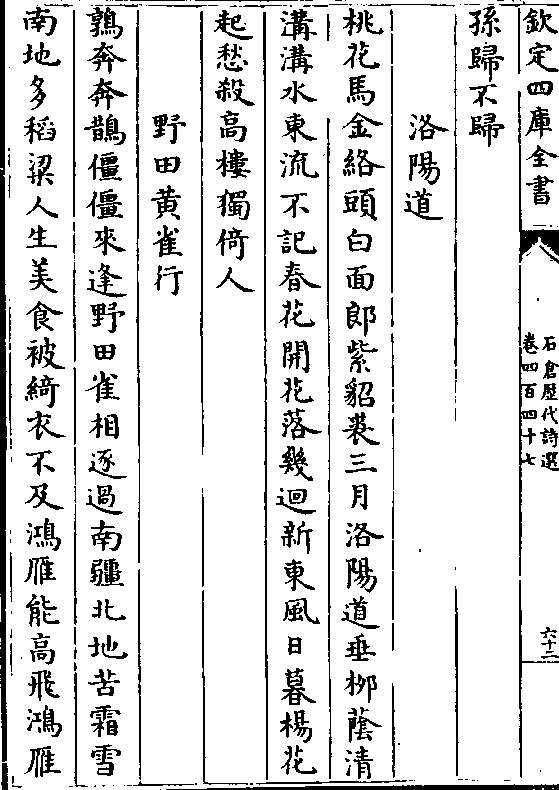 欽定四庫全書
石倉歷代詩選
卷四百四十七
六十二
孫歸不歸
洛陽道
桃花馬金絡頭白面郎紫貂裘三月洛陽道垂桺蔭清
溝溝水東流不記春花開花落幾迴新東風日暮楊花
起愁殺高樓獨倚人
野田黄雀行
鶉奔奔鵲僵僵來逢野田雀相逐過南疆北地苦霜雪
南地多稻粱人生美食被綺衣不及鴻雁能高飛鴻雁